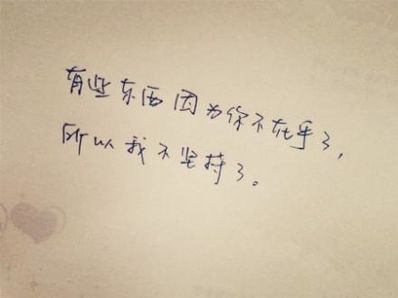 有些东西因为你不在乎了，
所以我不坚持了。